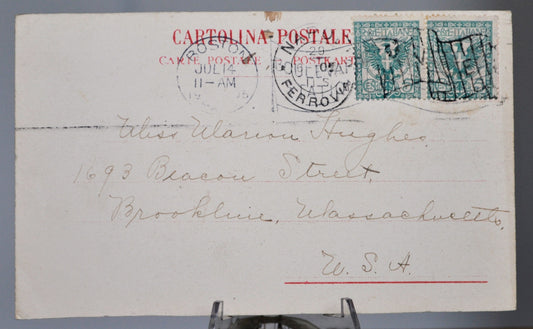 CARTOLINA POSTALE
CARTE POSTALE POSTKARTE
BOSTON
JUL 14
11-AM
FERROVIA
Miss Marion Hughes,
1693 Beacon Street,
Brookline, Massachusetts,
U. S. A.